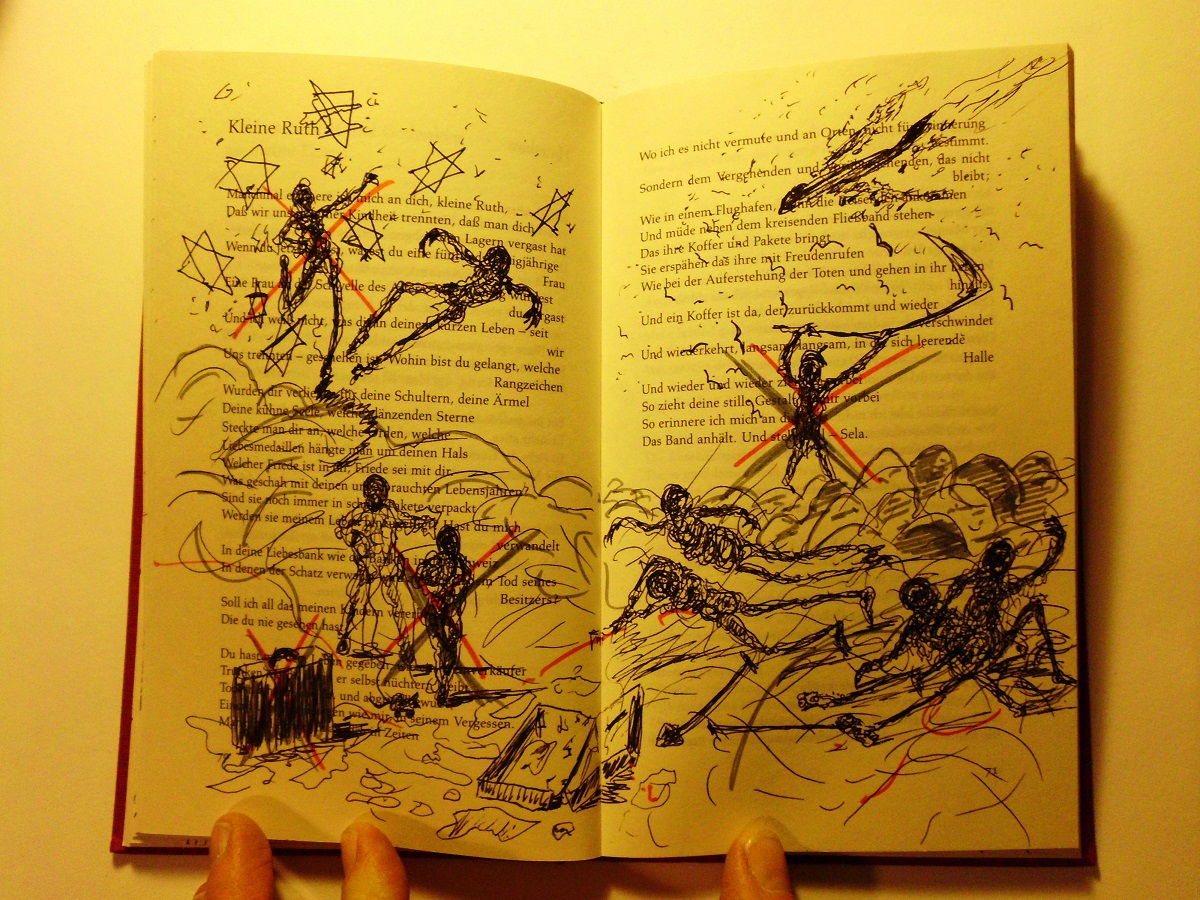 Kleine Ruth
Manchmal ich mich an dich, kleine Ruth,
Daß wir uns Kindheit trennten, daß man dich
Lagern vergast hat
Wenn du jetzt wärst du eine
Frau
Eine Frau an der Schwelle des
du vergast
Und ich weiß nicht, was dir in deinem kurzen Leben – seit
wir
Uns trennten – geschehen ist. Wohin bist du gelangt, welche
Rangzeichen
Wurden dir verliehen für deine Schultern, deine Ärmel
Deine kühne Seele, welche glänzenden Sterne
Steckte man dir an, welche Orden, welche
Liebesmedaillen hängte man um deinen Hals
Welcher Friede ist in dir, Friede sei mit dir.
Was geschah mit deinen unverbrauchten Lebensjahren?
Sind sie noch immer in Pakete verpackt
Werden sie meinem Hast du mich
verwandelt
In deine Liebesbank wie die
In denen der Schatz Tod seines
Besitzers?
Soll ich all das meinen Kindern
Die du nie gesehen hast
Du hast gegeben
er selbst nüchtern bleibt
und
wie in seinem Vergessen.
zu Zeiten
Wo ich es nicht vermute und an Orten, nicht für Erinnerung
bestimmt.
Sondern dem Vergehenden und Vorübergehenden, das nicht
bleibt;
Wie in einem Flughafen, wenn die Reisenden ankommen
Und müde neben dem kreisenden Fließband stehen
Das ihre Koffer und Pakete bringt
Sie erspähen das ihre mit Freudenrufen
Wie bei der Auferstehung der Toten und gehen in ihr Leben
hinaus.
Und ein Koffer ist da, der zurückkommt und wieder
verschwindet
Und wiederkehrt, langsam, langsam, in der sich leerende
Halle
Und wieder und wieder zieht er vorbei
So zieht deine stille Gestalt an mir vorbei
So erinnere ich mich an dich
Das Band anhält. Und – Sela.
71